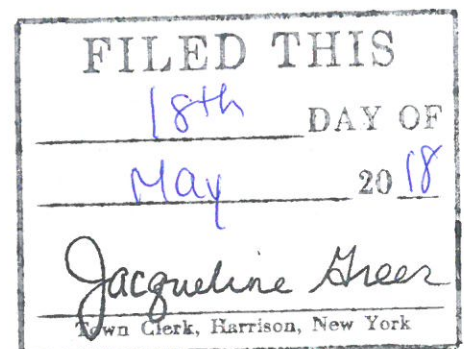 FILED THIS
18th DAY OF
May 20 18
Jacqueline Greer
Town Clerk, Harrison, New York